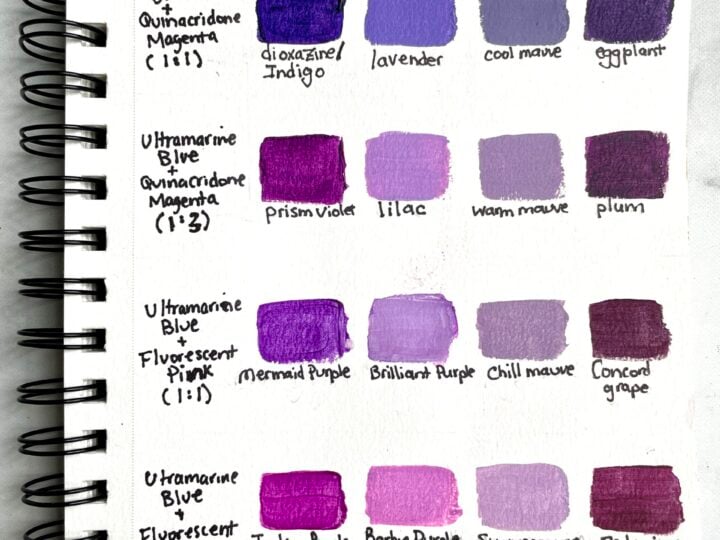 +
Quinacridone
Magenta
(1:1)
dioxazine/
Indigo
lavender
cool mauve
eggplant
Ultramarine
Blue
+
Quinacridone
Magenta
(1:3)
prism violet
lilac
warm mauve
plum
Ultramarine
Blue
+
Fluorescent
Pink
(1:1)
Mermaid Purple
Brilliant Purple
Chill mauve
Concord
grape
Utramarine
Blue
+
Fluorescent
Barbie Purple